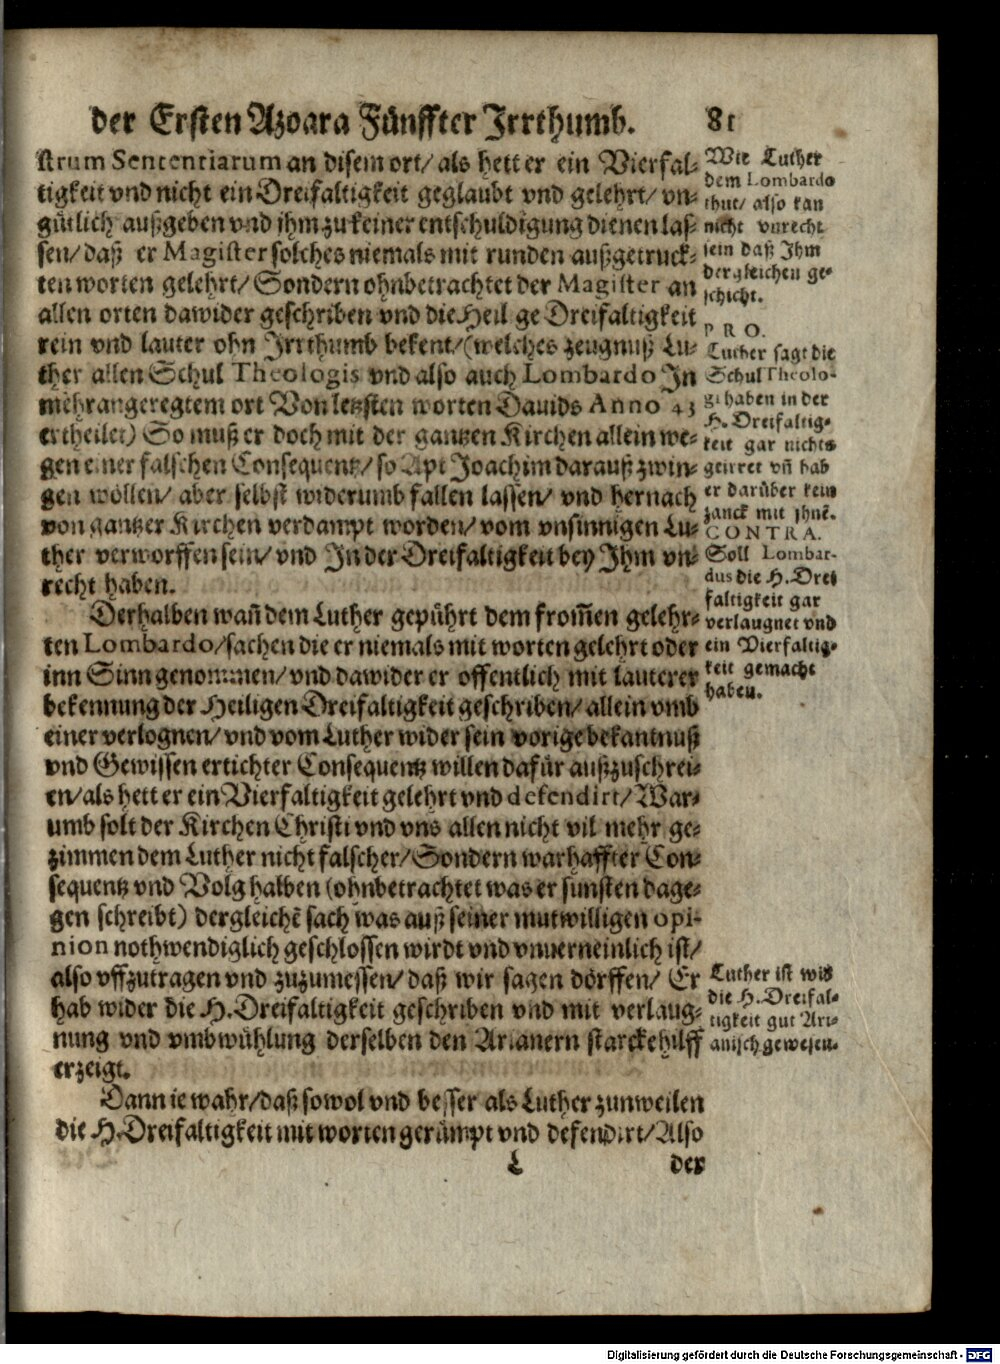 der Ersten Azoara Fünffter Irrthumb. 81
strum Sententiarum an disem ort/ als hett er ein Vierfal-
tigkeit vnd nicht ein Dreifaltigkeit geglaubt vnd gelehrt/ vn-
gütlich außgeben vnd ihm zu keiner entschuldigung dienen las-
sen/ daß er Magister solches niemals mit runden außgetruck-
ten worten gelehrt/ Sondern ohnbetrachtet der Magister an
allen orten dawider geschriben vnd die Heilige Dreifaltigkeit
rein vnd lauter ohn Irrthumb bekent/ (welches zeugnuß Lu-
ther allen Schul Theologis vnd also auch Lombardo In
mehrangeregtem ort Von letzsten worten Dauids Anno 43
ertheilet) So muß er doch mit der gantzen Kirchen allein we-
gen einer falschen Consequentz/ so Apt Joachim darauß zwin-
gen wöllen/ aber selbst widerumb fallen lassen/ vnd hernach
von gantzer Kirchen verdampt worden/ vom vnsinnigen Lu-
ther verworffen sein/ vnd In der Dreifaltigkeit bey Ihm vn-
recht haben.
Derhalben wañ dem Luther gepührt dem from̃en gelehr-
ten Lombardo/ sachen die er niemals mit worten gelehrt oder
inn Sinn genommen/ vnd dawider er offentlich mit lauterer
bekennung der Heiligen Dreifaltigkeit geschriben/ allein vmb
einer verlognen/ vnd vom Luther wider sein vorige bekantnuß
vnd Gewissen ertichter Consequentz willen dafür außzuschrei-
en/ als hett er ein Vierfaltigkeit gelehrt vnd defendirt/ War-
umb solt der Kirchen Christi vnd vns allen nicht vil mehr ge-
zimmen dem Luther nicht falscher/ Sondern warhaffter Con-
sequentz vnd Volg halben (ohnbetrachtet was er sunsten dage-
gen schreibt) dergleichẽ sach was auß seiner mutwilligen opi-
nion nothwendiglich geschlossen wirdt vnd vnuerneinlich ist/
also vffzutragen vnd zuzumessen/ daß wir sagen dörffen/ Er
hab wider die H. Dreifaltigkeit geschriben vnd mit verlaug-
nung vnd vmbwühlung derselben den Arianern starcke hilff
erzeigt.
Dann ie wahr/ daß sowol vnd besser als Luther zunweilen
die H. Dreifaltigkeit mit worten gerümpt vnd defendirt/ Also
L der
Wie Luther
dem Lombardo
thut/ also kan
nicht vnrecht
sein daß Ihm
dergleichen ge-
schicht.
PRO.
Luther sagt die
Schul Theolo-
gi haben in der
H. Dreifaltig-
keit gar nichts
geirret vñ hab
er darüber kein
zanck mit ihnẽ.
CONTRA.
Soll Lombar-
dus die H. Drei
faltigkeit gar
verlaugnet vnd
ein Vierfaltig-
keit gemacht
haben.
Luther ist wid
die H. Dreifal-
tigkeit gut Ari-
anisch gewesen.
Digitalisierung gefördert durch die Deutsche Forschungsgemeinschaft - DFG